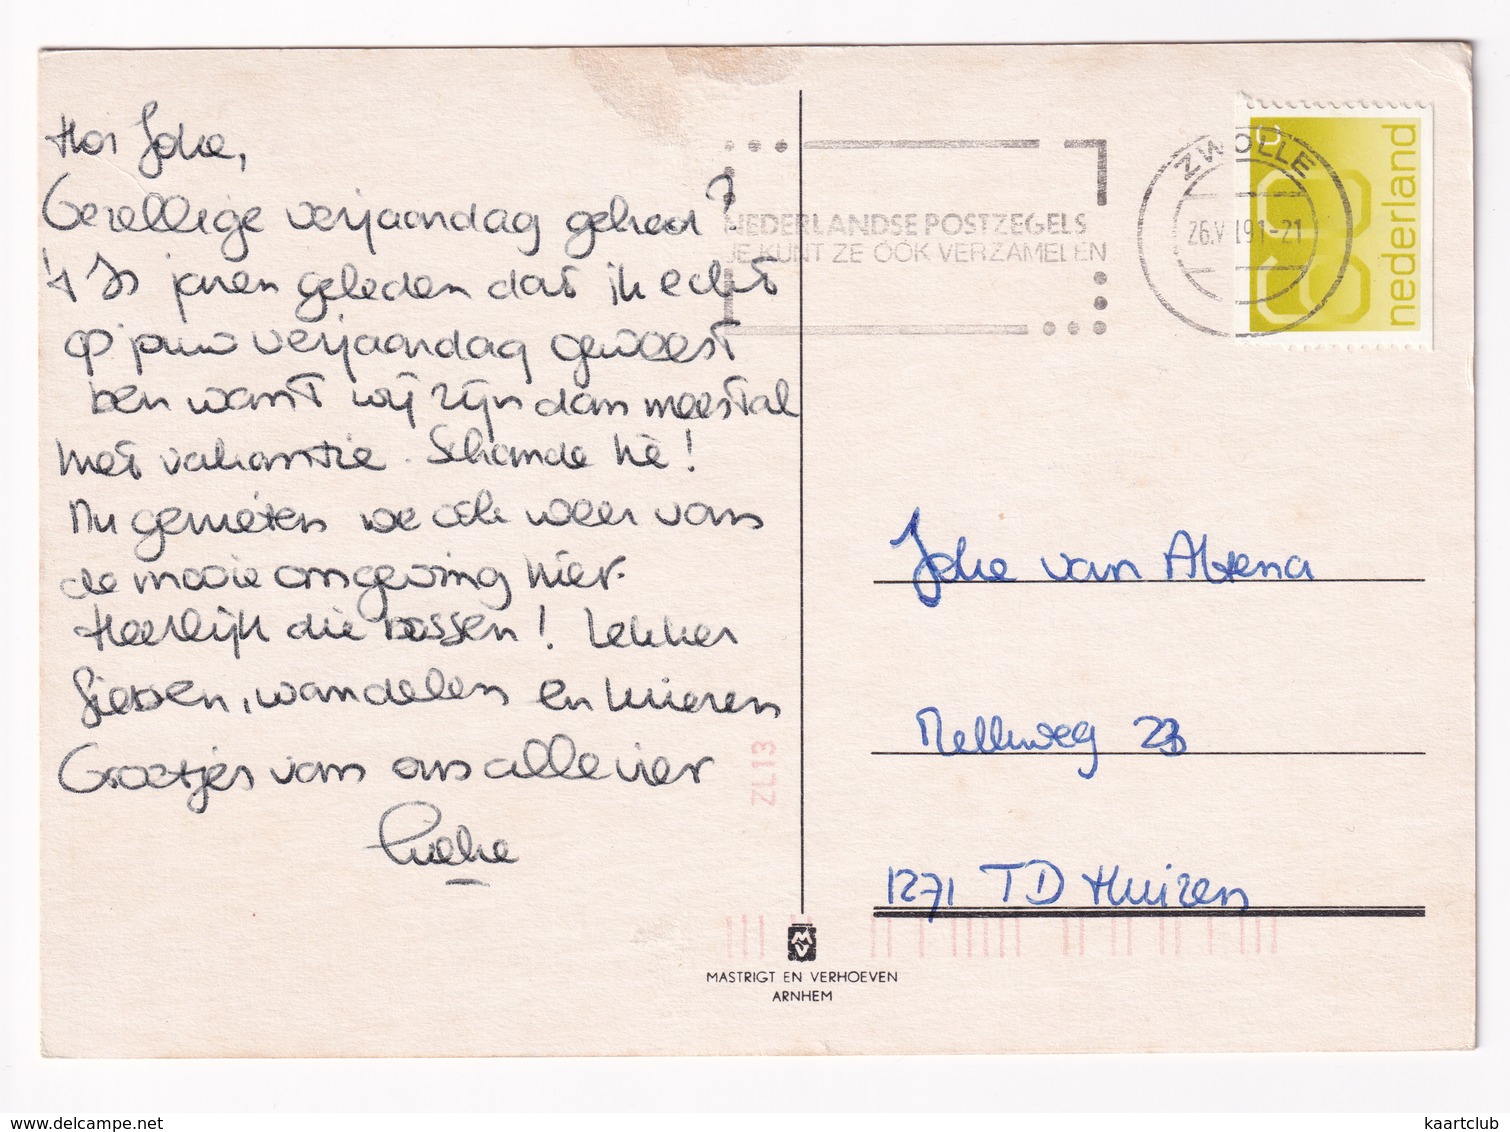 Hoi Joke,
Gezellige verjaardag gehad?
't Is jaren geleden dat ik echt
op jouw verjaardag geweest
ben want wij zijn dan meestal
met vakantie. Schande hè!
Nu genieten we ook weer van
de mooie omgeving hier.
Heerlijk die bossen! Lekker
fietsen, wandelen en luieren
Groetjes van ons alle vier
NEDERLANDSE POSTZEGELS
JE KUNT ZE OOK VERZAMELEN
ZWOLLE
26.VI.91-21
nederland
Joke van Altena
Melkweg 23
1271 TD Huizen
ZL13
MV
MASTRIGT EN VERHOEVEN
ARNHEM
delcampe.net
kaartclub